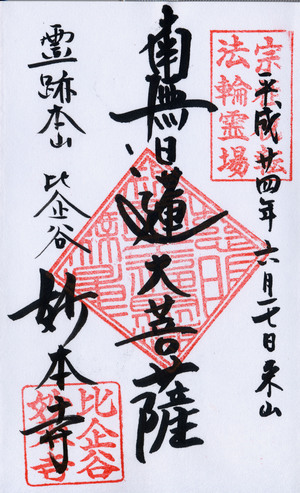 法輪霊場
平成廿四年六月十七日来山
南無日蓮大菩薩
霊跡本山 比企谷
妙本寺
比企谷
妙本寺